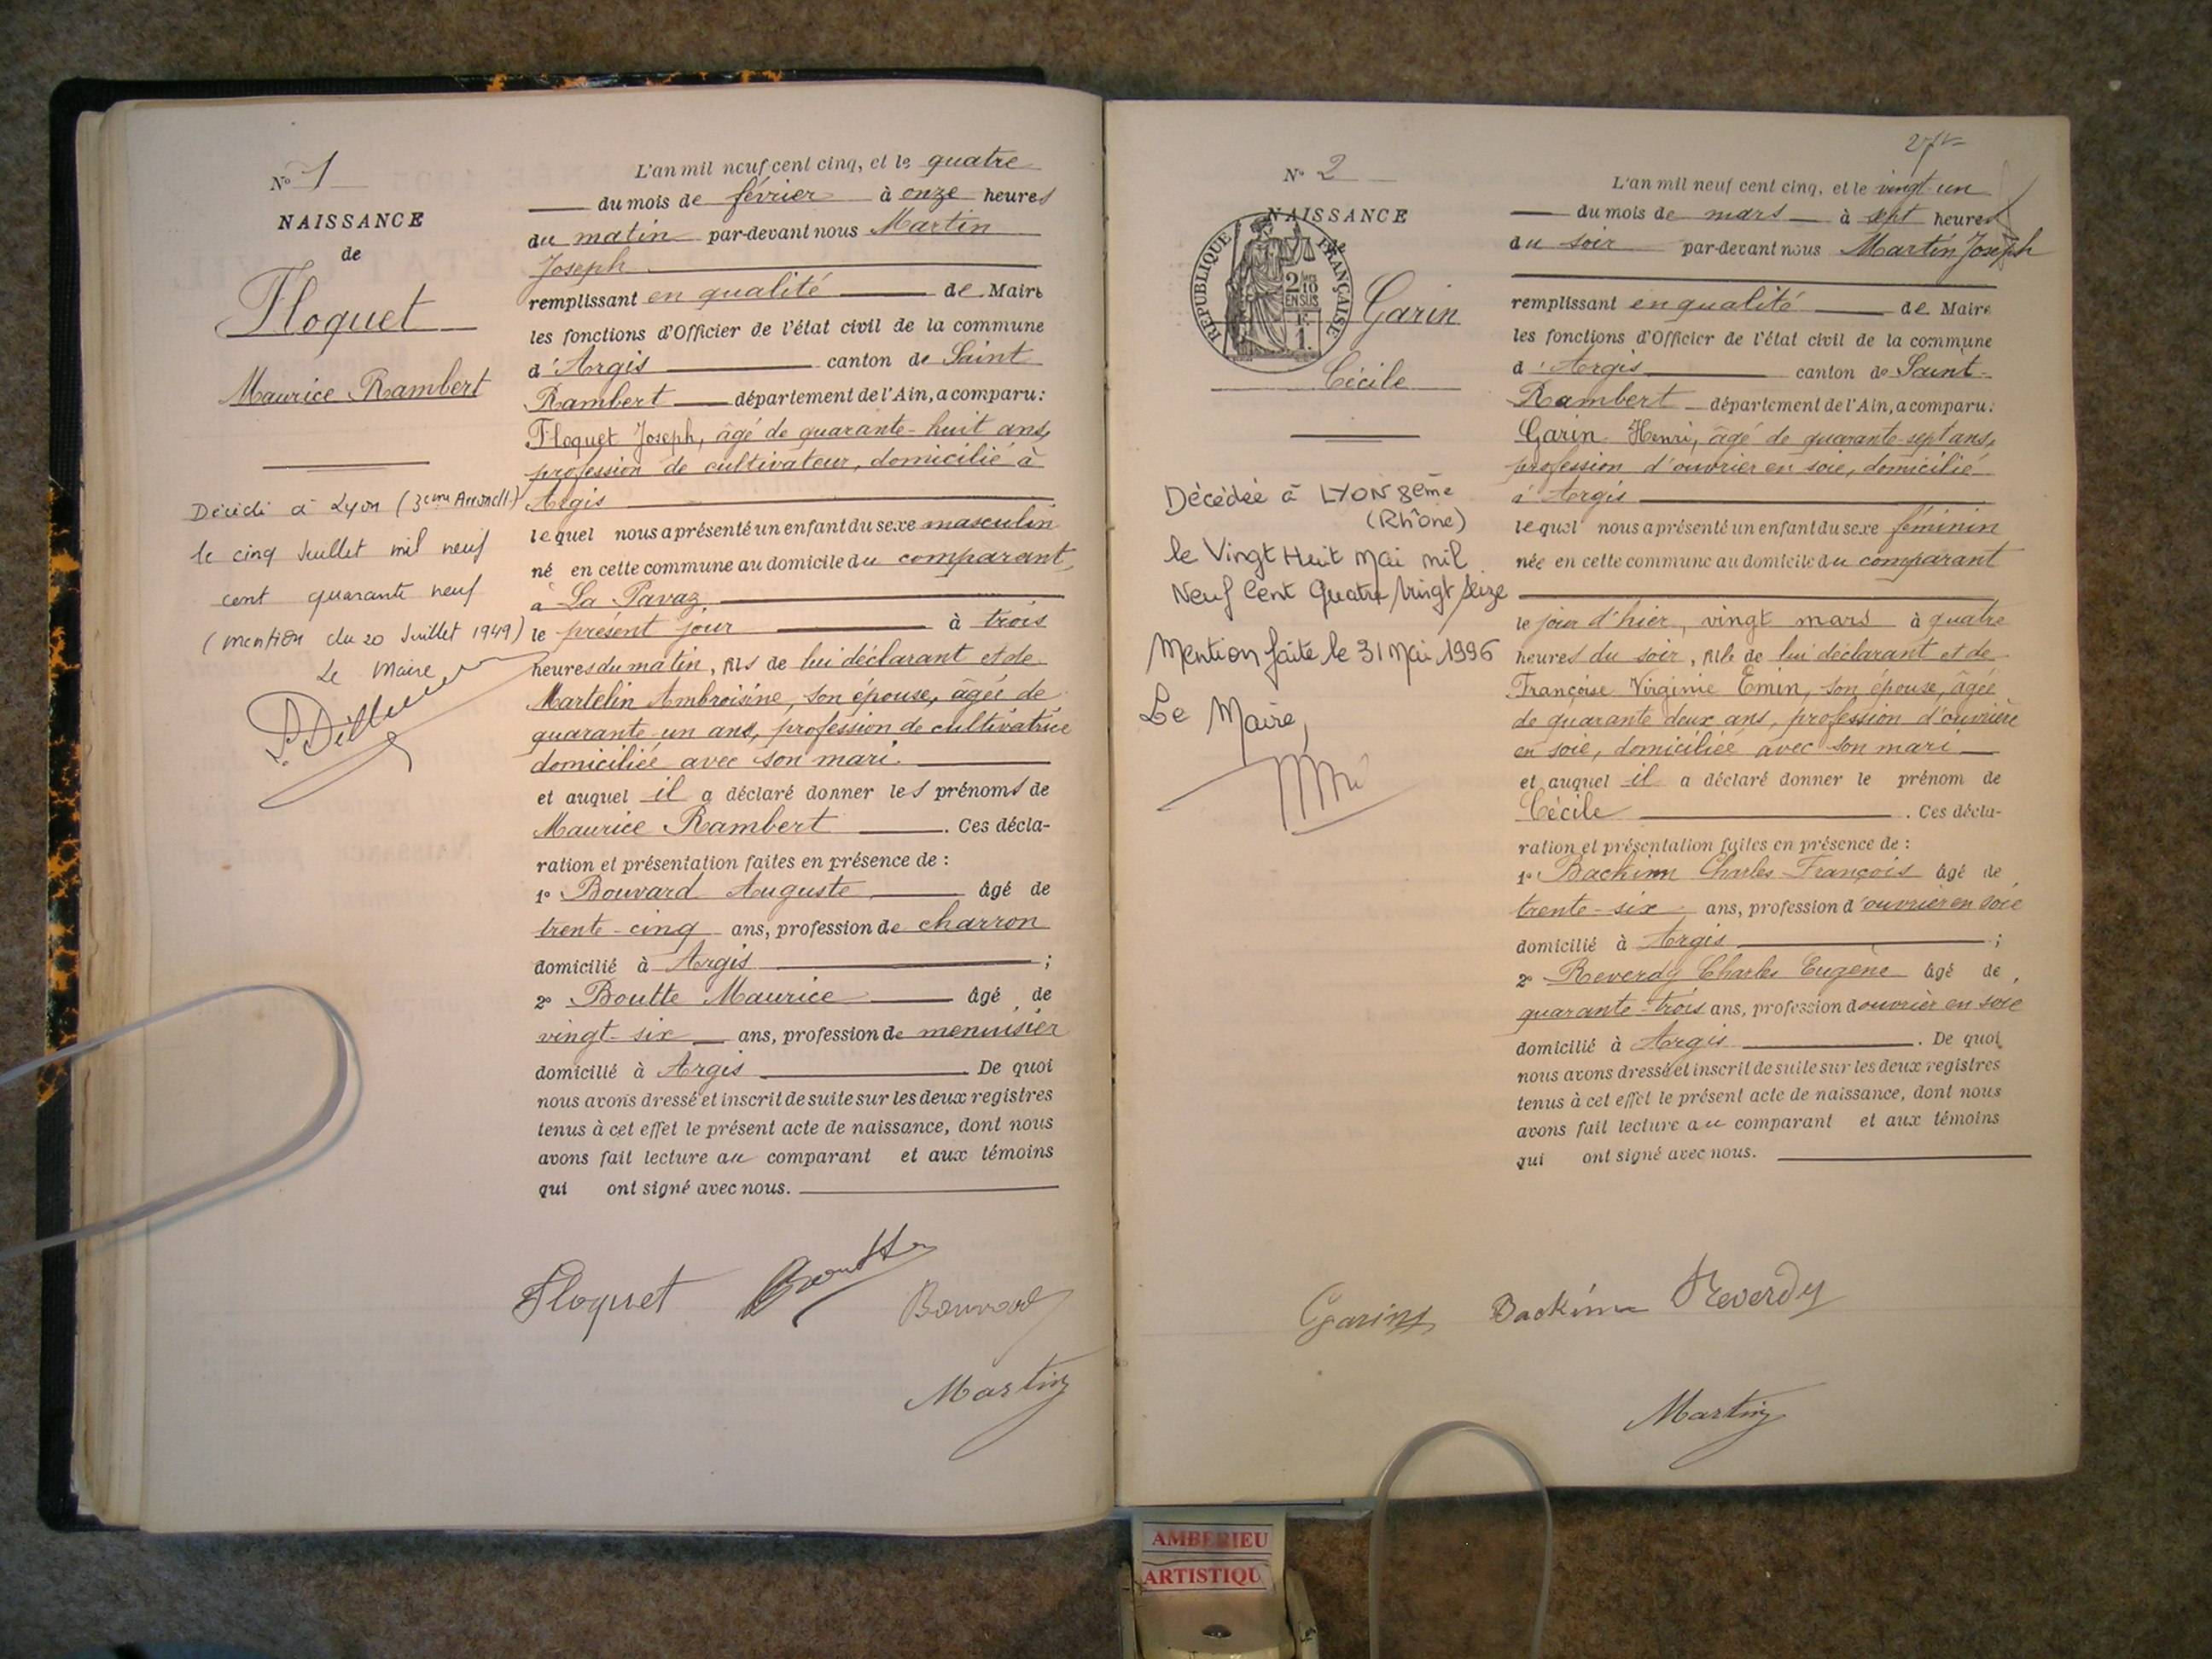 N° 1
NAISSANCE
de
Floquet
Maurice Rambert
Décédé à Lyon (3eme Arrondt.)
le cinq Juillet mil neuf
cent quarante neuf
(mention du 20 Juillet 1949)
Le Maire
L'an mil neuf cent cinq, et le quatre
du mois de février à onze heures
du matin par-devant nous Martin
Joseph
remplissant en qualité de Maire
les fonctions d'Officier de l'état civil de la commune
d'Argis canton de Saint
Rambert département de l'Ain, a comparu:
Floquet Joseph, âgé de quarante-huit ans,
profession de cultivateur, domicilié à
Argis
lequel nous a présenté un enfant du sexe masculin
né en cette commune au domicile du comparant,
à La Pavaz
le présent jour à trois
heures du matin, fils de lui déclarant et de
Martelin Ambroisine, son épouse, âgée de
quarante un ans, profession de cultivatrice
domiciliée avec son mari.
et auquel il a déclaré donner les prénoms de
Maurice Rambert. Ces décla-
ration et présentation faites en présence de :
1° Bouvard Auguste âgé de
trente-cinq ans, profession de charron
domicilié à Argis ;
2° Boutte Maurice âgé de
vingt-six ans, profession de menuisier
domicilié à Argis De quoi
nous avons dressé et inscrit de suite sur les deux registres
tenus à cet effet le présent acte de naissance, dont nous
avons fait lecture au comparant et aux témoins
qui ont signé avec nous.
Floquet Boutte Bouvard
Martin
N° 2
NAISSANCE
de
REPUBLIQUE FRANÇAISE
2/10
EN SUS
1.
Garin
Cécile
Décédée à LYON 8eme
(Rhône)
le Vingt Huit Mai mil
Neuf Cent Quatre Vingt Seize
Mention faite le 31 Mai 1996
Le Maire,
L'an mil neuf cent cinq, et le vingt-un
du mois de mars à sept heures
du soir par-devant nous Martin Joseph
remplissant en qualité de Maire
les fonctions d'Officier de l'état civil de la commune
d'Argis canton de Saint-
Rambert département de l'Ain, a comparu:
Garin Henri, âgé de quarante-sept ans,
profession d'ouvrier en soie, domicilié
à Argis
lequel nous a présenté un enfant du sexe féminin
née en cette commune au domicile du comparant
le jour d'hier, vingt mars à quatre
heures du soir, fille de lui déclarant et de
Françoise Virginie Emin, son épouse, âgée
de quarante deux ans, profession d'ouvrière
en soie, domiciliée avec son mari
et auquel il a déclaré donner le prénom de
Cécile. Ces décla-
ration et présentation faites en présence de :
1° Backimn Charles François âgé de
trente-six ans, profession d'ouvrier en soie
domicilié à Argis ;
2° Reverdy Charles Eugène âgé de
quarante-trois ans, profession d'ouvrier en soie
domicilié à Argis. De quoi
nous avons dressé et inscrit de suite sur les deux registres
tenus à cet effet le présent acte de naissance, dont nous
avons fait lecture au comparant et aux témoins
qui ont signé avec nous.
Garin Backimn Reverdy
Martin
AMBERIEU
ARTISTIQU